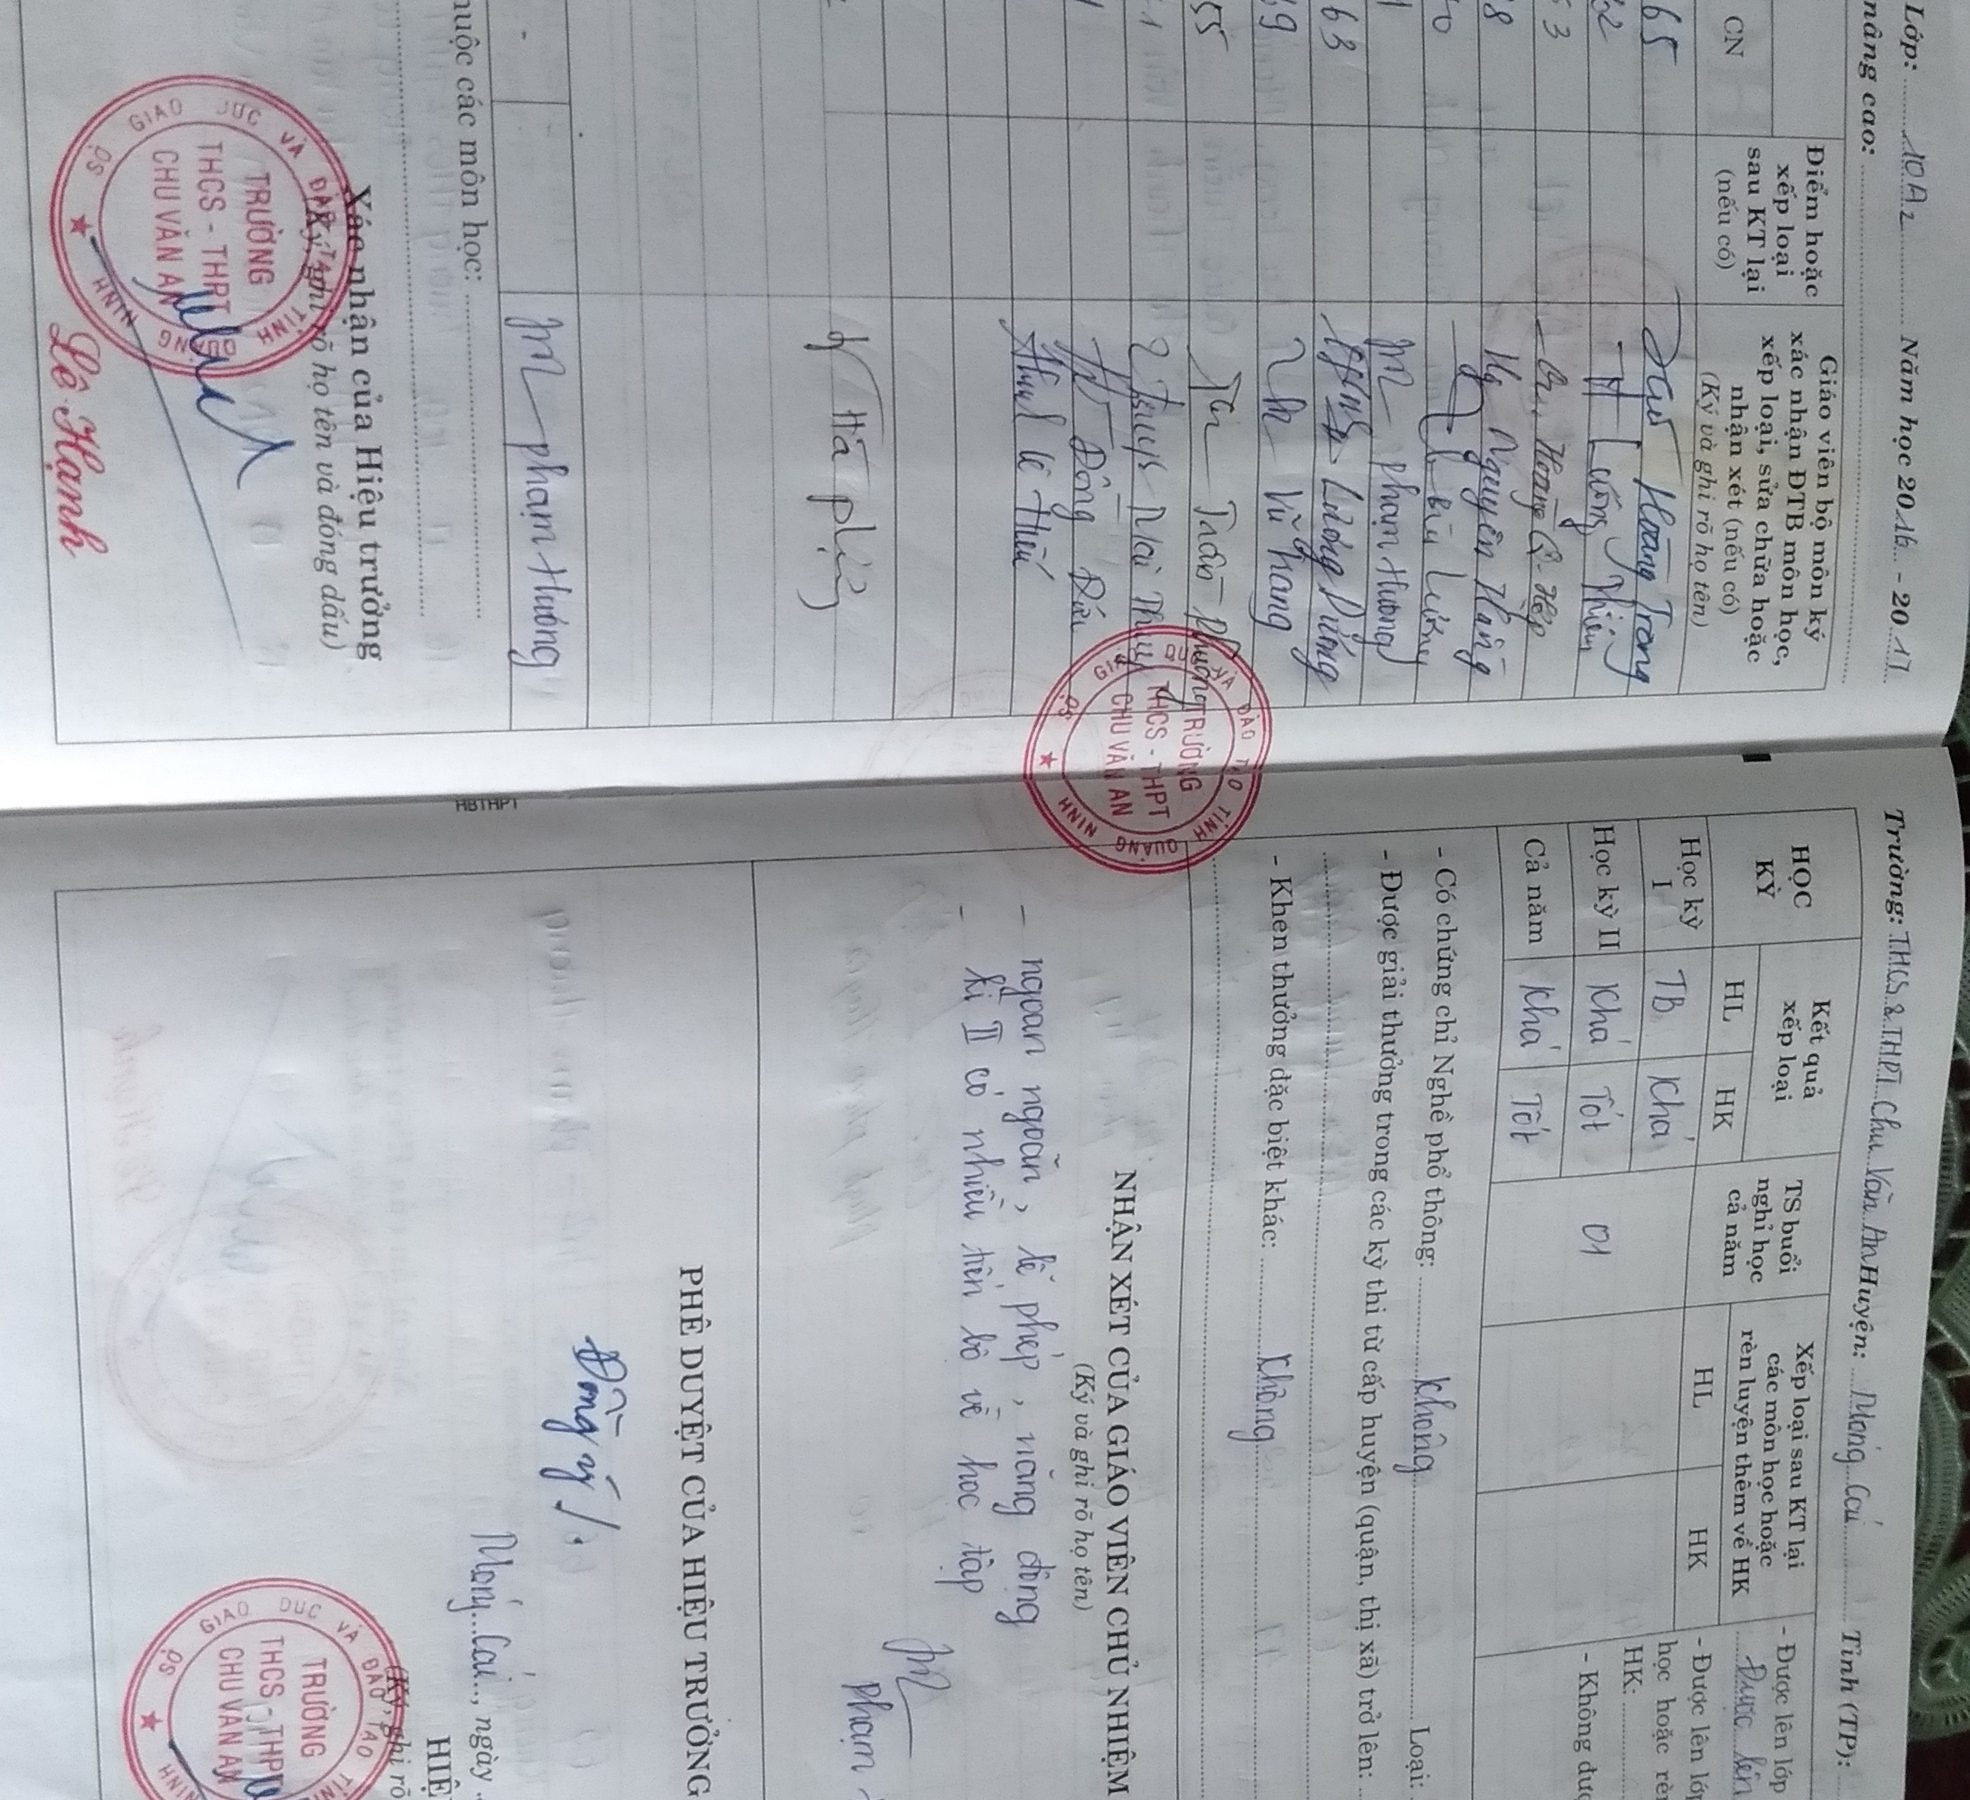 Lớp: 10A2 Năm học 2016 - 2017
nâng cao:
CN
Điểm hoặc
xếp loại
sau KT lại
(nếu có)
Giáo viên bộ môn ký
xác nhận ĐTB môn học,
xếp loại, sửa chữa hoặc
nhận xét (nếu có)
(Ký và ghi rõ họ tên)
65 Hoàng Trang
Lương Thiên
3
8 Nguyên Hằng
0 Lương
Phạm Hương
63 Lương Dưỡng
9 Vũ Thang
55 Trần Phương
1
Đồng
Lê Hiếu
Hà
- Phạm Hương
huộc các môn học:
Xác nhận của Hiệu trưởng
(Ký, ghi rõ họ tên và đóng dấu)
SỞ GIÁO DỤC VÀ ĐÀO TẠO TỈNH QUẢNG NINH
TRƯỜNG
THCS - THPT
CHU VĂN AN
Lê Hạnh
SỞ GIÁO DỤC VÀ ĐÀO TẠO TỈNH QUẢNG NINH
TRƯỜNG
THCS - THPT
CHU VĂN AN
HBTHPT
Trường: THCS & THPT Chu Văn An Huyện: Móng Cái Tỉnh (TP):
HỌC
KỲ
Kết quả
xếp loại
HL HK
TS buổi
nghỉ học
cả năm
Xếp loại sau KT lại
các môn học hoặc
rèn luyện thêm về HK
HL HK
- Được lên lớp
Được lên
- Được lên lớp
học hoặc rèn
HK:
- Không đượ
Học kỳ
I TB Khá
Học kỳ II Khá Tốt 01
Cả năm Khá Tốt
- Có chứng chỉ Nghề phổ thông: Không Loại:
- Được giải thưởng trong các kỳ thi từ cấp huyện (quận, thị xã) trở lên:
- Khen thưởng đặc biệt khác: Không
NHẬN XÉT CỦA GIÁO VIÊN CHỦ NHIỆM
(Ký và ghi rõ họ tên)
- ngoan ngoãn, lễ phép, năng động
- kì II có nhiều tiến bộ về học tập
Phạm
PHÊ DUYỆT CỦA HIỆU TRƯỞNG
Đồng ý /.
Móng Cái, ngày
HIỆ
(Ký, ghi rõ
SỞ GIÁO DỤC VÀ ĐÀO TẠO TỈNH NINH
TRƯỜNG
THCS - THPT
CHU VĂN AN